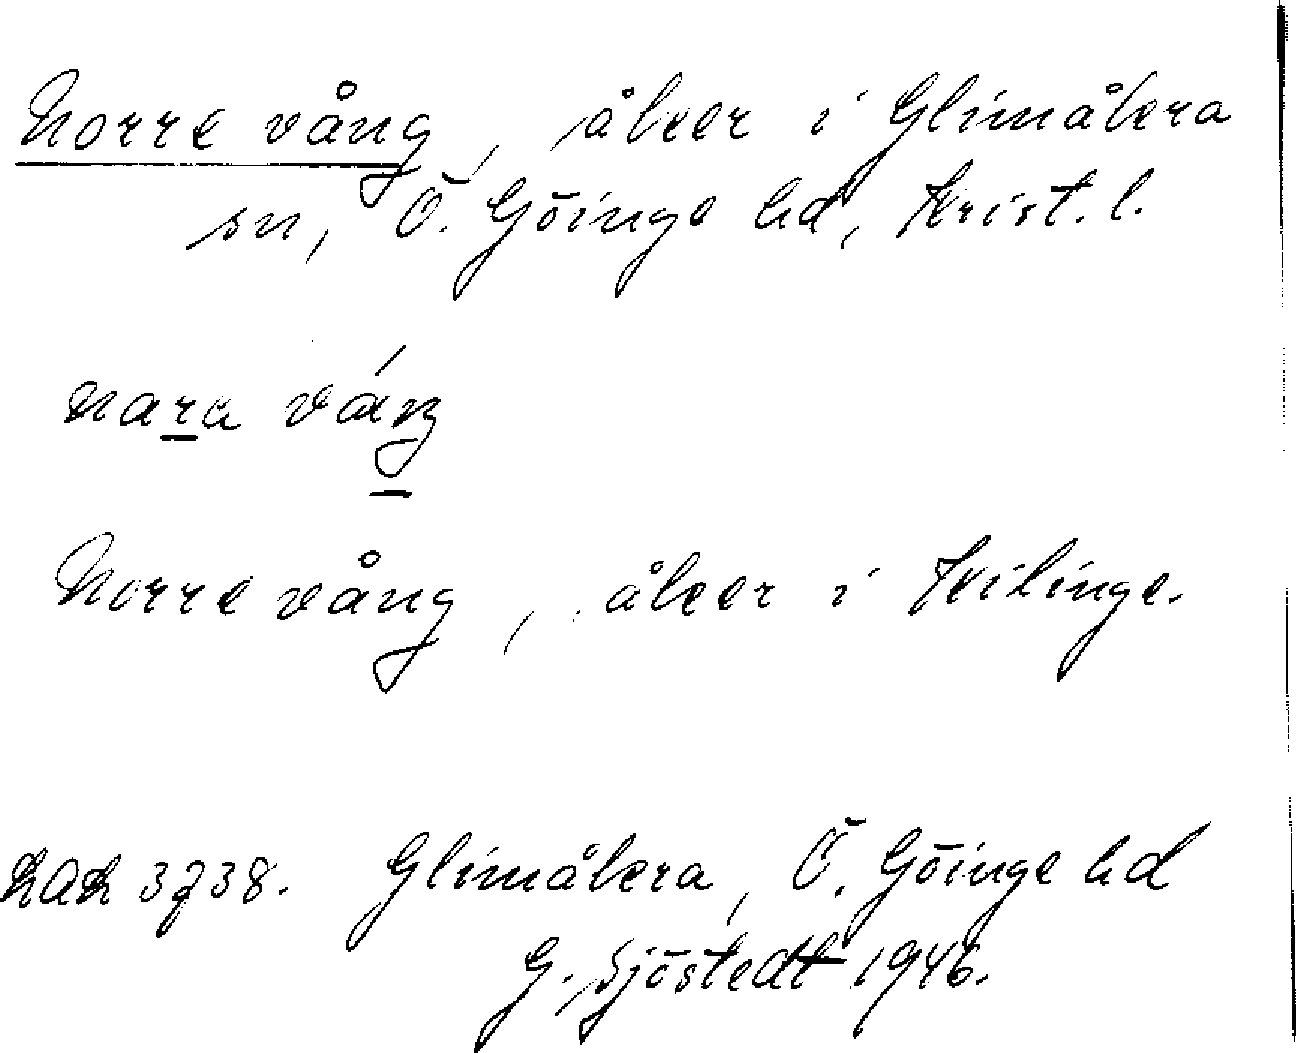 Norre vång, åker i Glimåkra
sn, Ö. Göinge hd, Krist. l.
nara váŋ
Norre vång, åker i Kvilinge.
LAL 3738. Glimåkra, Ö. Göinge hd
G. Sjöstedt 1946.